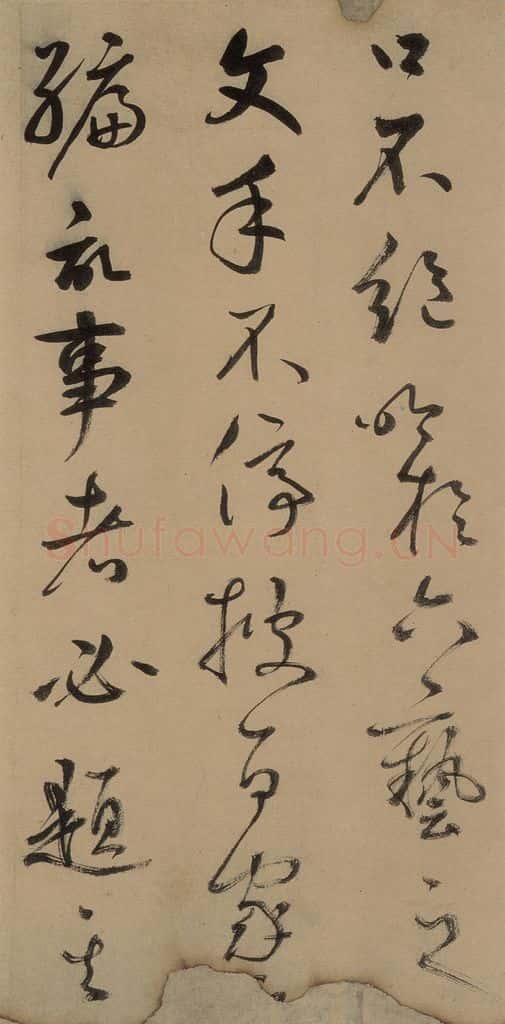 口不絕吟於六藝之
文手不停披百家之
編記事者必提其
Shufawang.CN